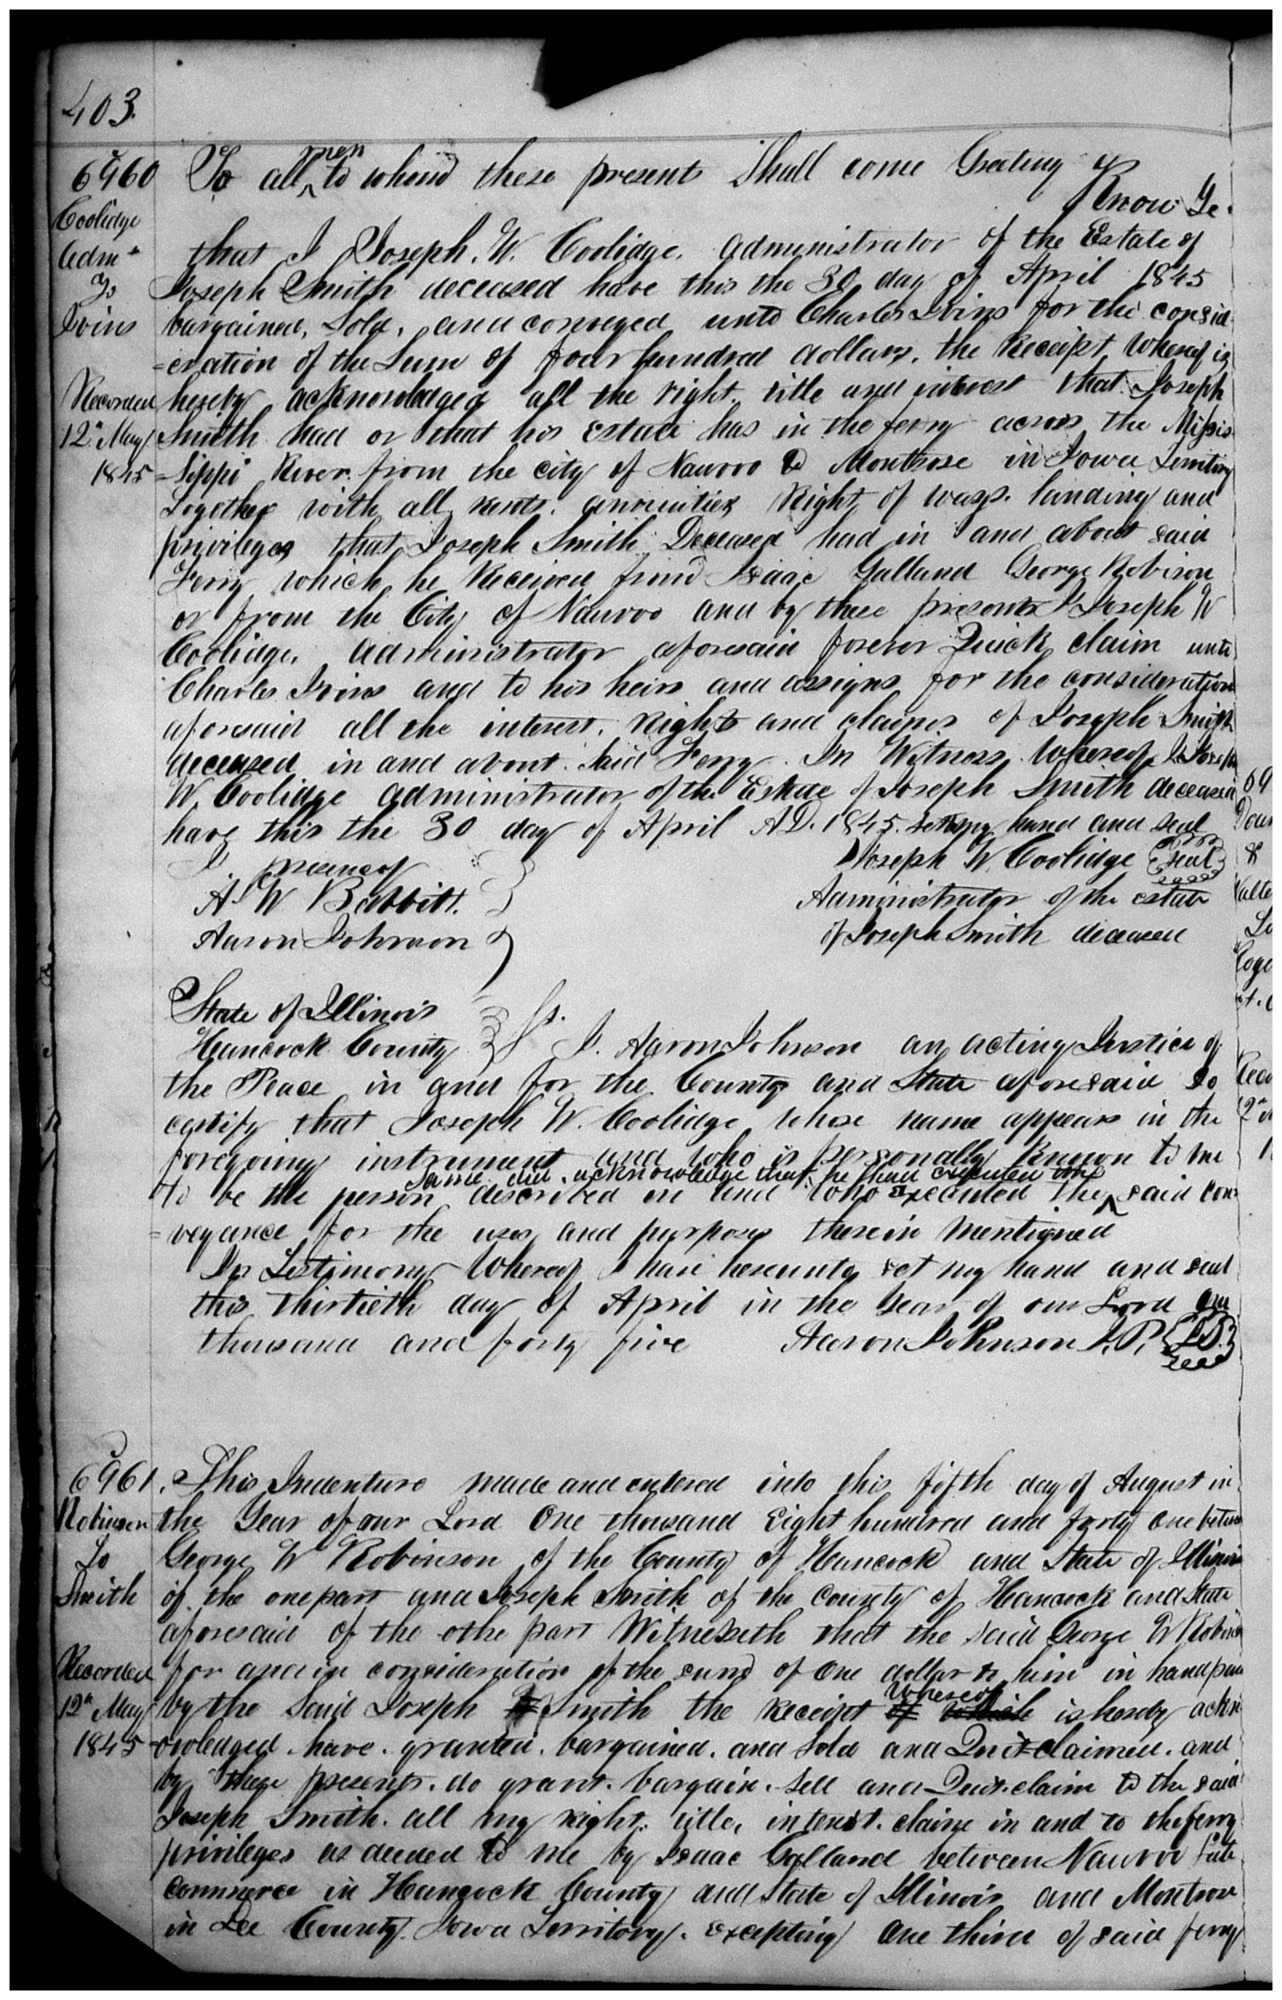 403.
6960
Coolidge
Adm^r
To
Ivins
Recorded
12" May
1845
To all ^men to whom these present Shall come Greeting
Know Ye.
that I Joseph. W. Coolidge. administrator of the Estate of
Joseph Smith deceased have this the 30 day of April 1845
bargained, Sold, and conveyed unto Charles Ivins for the consid
=eration of the Sum of four hundred dollars. the Receipt whereof is
hereby acknowledged all the right. title and interest that Joseph
Smith had or that his Estate has in the ferry across the Missis
=sippi River from the city of Nauvoo to Montrose in Iowa Territory
Together with all rents. annuities Right of ways. landing and
privileges that Joseph Smith Deceased had in and about said
Ferry which he Received from Isaac Galland George Robison
or from the City of Nauvoo and by these presents I Joseph W
Coolidge. administrator aforesaid forever Quick claim unto
Charles Ivins and to his heirs and assigns for the consideration
aforesaid all the interest. Rights and claims of Joseph Smith
deceased in and about said Ferry. In Witness Whereof I Joseph
W. Coolidge administrator of the Estate of Joseph Smith deceased
have this the 30 day of April A.D. 1845. set my hand and seal
I presence of
A. W Babbitt.
Aaron Johnson
Joseph W. Coolidge seal
Administrator of the estate
of Joseph Smith deceased
State of Illinois
Hancock County Ss.
I. Aaron Johnson an acting Justice of
the Peace in and for the County and State aforesaid do
certify that Joseph W. Coolidge whose name appears in the
foregoing instrument and who is personally known to me
same did. acknowledge that he had executed the
to be the person described in and who executed the ^ said con
=veyance for the uses and purposes therein mentioned
In Testimony Whereof I have hereunto set my hand and seal
this thirtieth day of April in the Year of our Lord one
thousand and forty five Aaron Johnson J.P. L.S.
6961.
Robinson
To
Smith
Recorded
12" May
1845
This Indenture made and entered into this fifth day of August in
the Year of our Lord One thousand Eight hundred and forty one between
George W Robinson of the County of Hancock and State of Illinois
of the one part and Joseph Smith of the County of Hancock and State
aforesaid of the othe part Witnesseth that the said George W Robinson
for and in consideration of the sum of One dollar to him in hand paid
by the said Joseph Smith the Receipt of which Whereof is hereby ackn
owledged. have. granted. bargained. and Sold and Quit claimed. and
by these presents. do grant. bargain. sell and Quit. claim to the said
Joseph Smith. all my right. title. interest. claim in and to the ferry
privileges as deeded to me by Isaac Galland between Nauvoo late
commerce in Hancock County and State of Illinois and Montrose
in Lee County Iowa Territory. excepting One third of said ferry